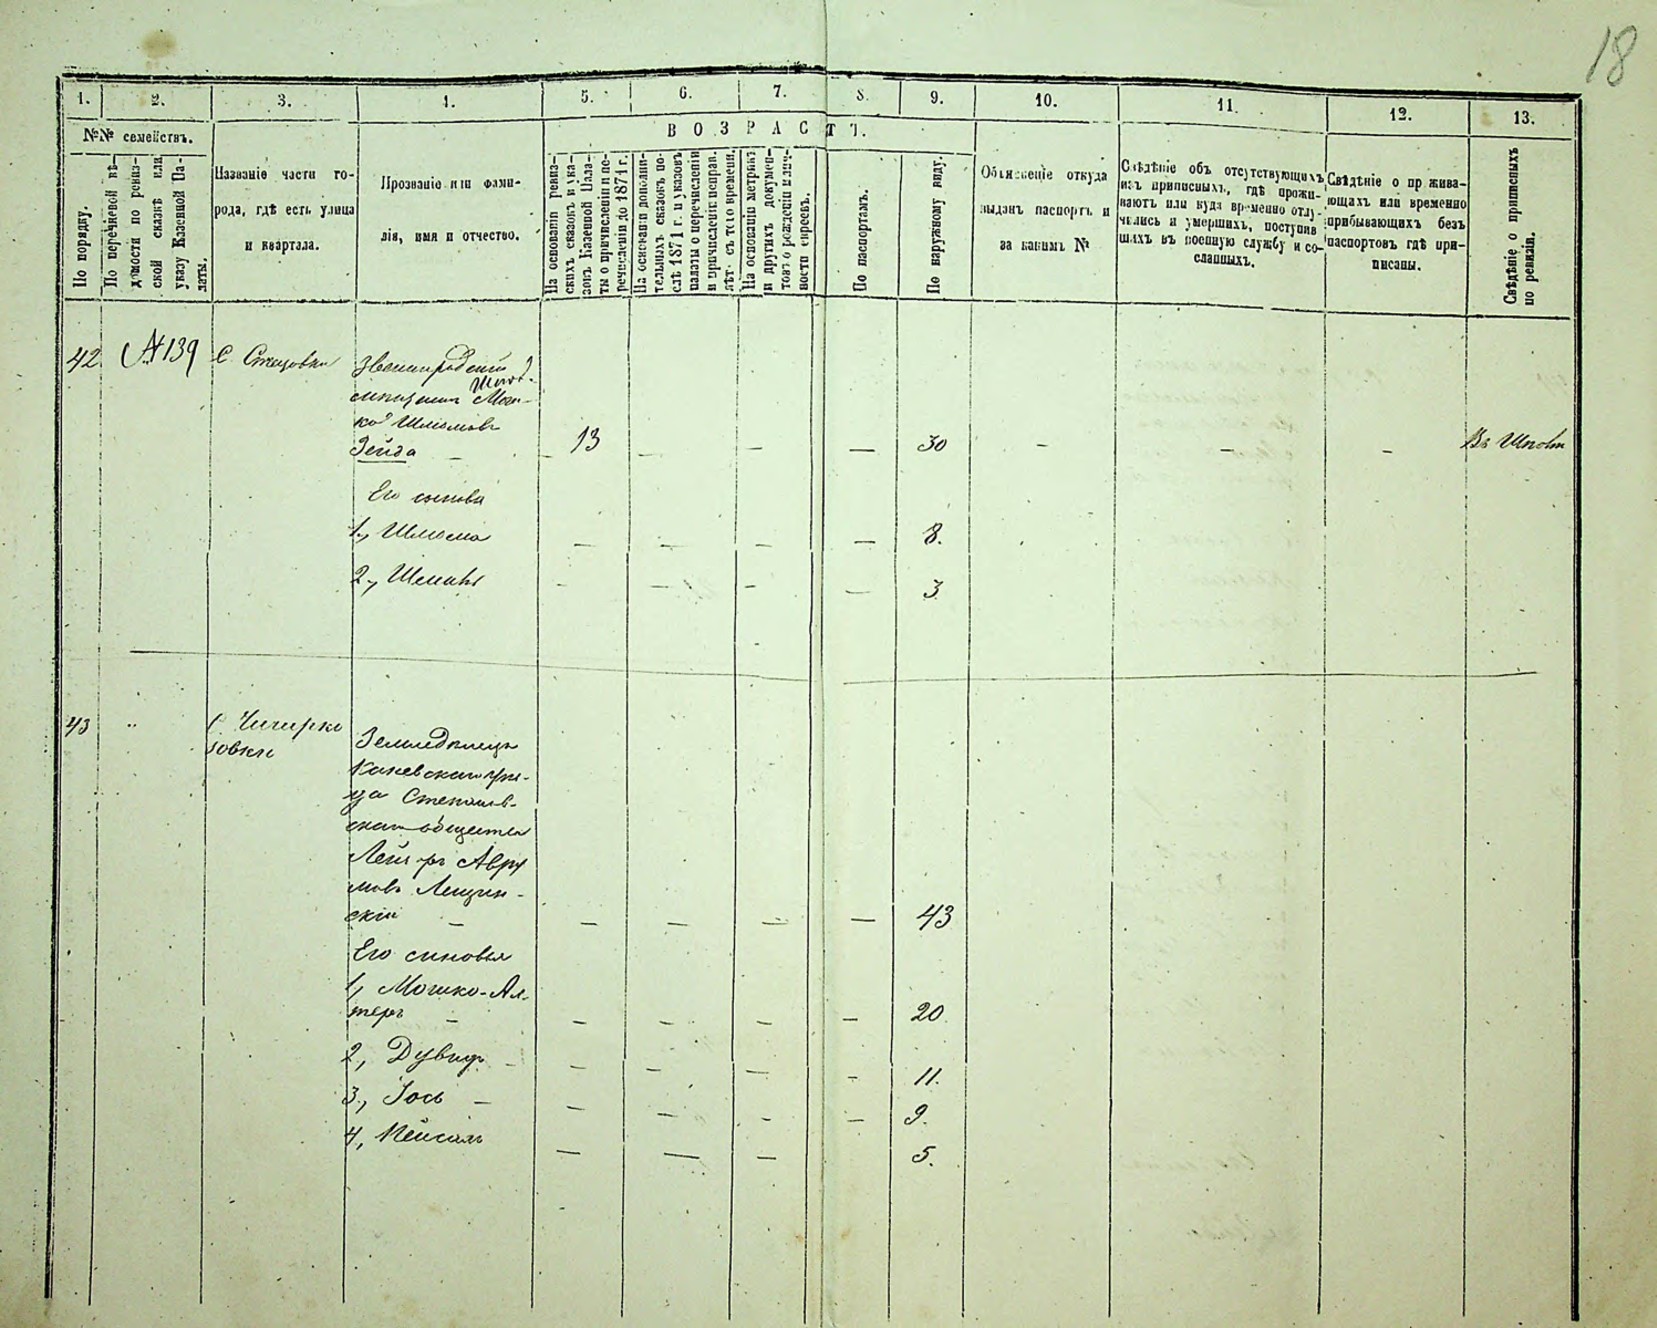 18
1. 2. 3. 4. 5. 6. 7. 8. 9. 10. 11. 12. 13.
№№ семействъ.
В О З Р А С Т Ъ.
По порядку.
По перечневой вѣ-
домости по ревиз-
ской сказкѣ или
указу Казенной Па-
латы.
Названіе части го-
рода, гдѣ есть улица
и квартала.
Прозваніе или фами-
лія, имя и отчество.
На основаніи ревиз-
скихъ сказокъ и ука-
зовъ Казенной Пала-
ты о причисленіи и пе-
речисленіи до 1871 г.
На основаніи дополни-
тельныхъ сказокъ по-
слѣ 1871 г. и указовъ
палаты о перечисленіи
и причисленіи исправ.
лѣт. съ того времени.
На основаніи метрикъ
и другихъ докумен-
товъ о рожденіи и лич-
ности евреевъ.
По паспортамъ.
По наружному виду.
Объясненіе откуда
выданъ паспортъ и
за какимъ №
Свѣдѣніе объ отсутствующихъ
изъ приписныхъ, гдѣ прожи-
ваютъ или куда временно отлу-
чились и умершихъ, поступив
шихъ въ военную службу и со-
сланныхъ.
Свѣдѣніе о прожива-
ющахъ или временно
прибывающихъ безъ
паспортовъ гдѣ при-
писаны.
Свѣдѣніе о приписныхъ
по ревизіи.
42 № 139 с. Стецовки
Мош-
ко Шлиомовъ
Зейда — 13 — — — 30 — — — Въ Шпол
Его сыновья
1., Шлиома — — — — 8.
2., — — — — 3
43 " с. Чичирко
зовки
Земледѣлецъ
Каневскаго уѣз-
да
скаго общества
Лейзеръ Авру
мовъ Лещин-
скій — — — — — 43
Его сыновья
1, Мошко-Ал-
теръ — — — — — 20
2, Дувидъ — — — — — 11.
3, Іось — — — — — 9.
4, — — — 5.